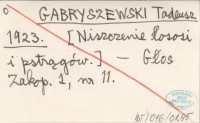 O GABRYSZEWSKI Tadeusz
1923. [Niszczenie łososi
i pstrągów.] — Głos
Zakop. 1, nr 11.